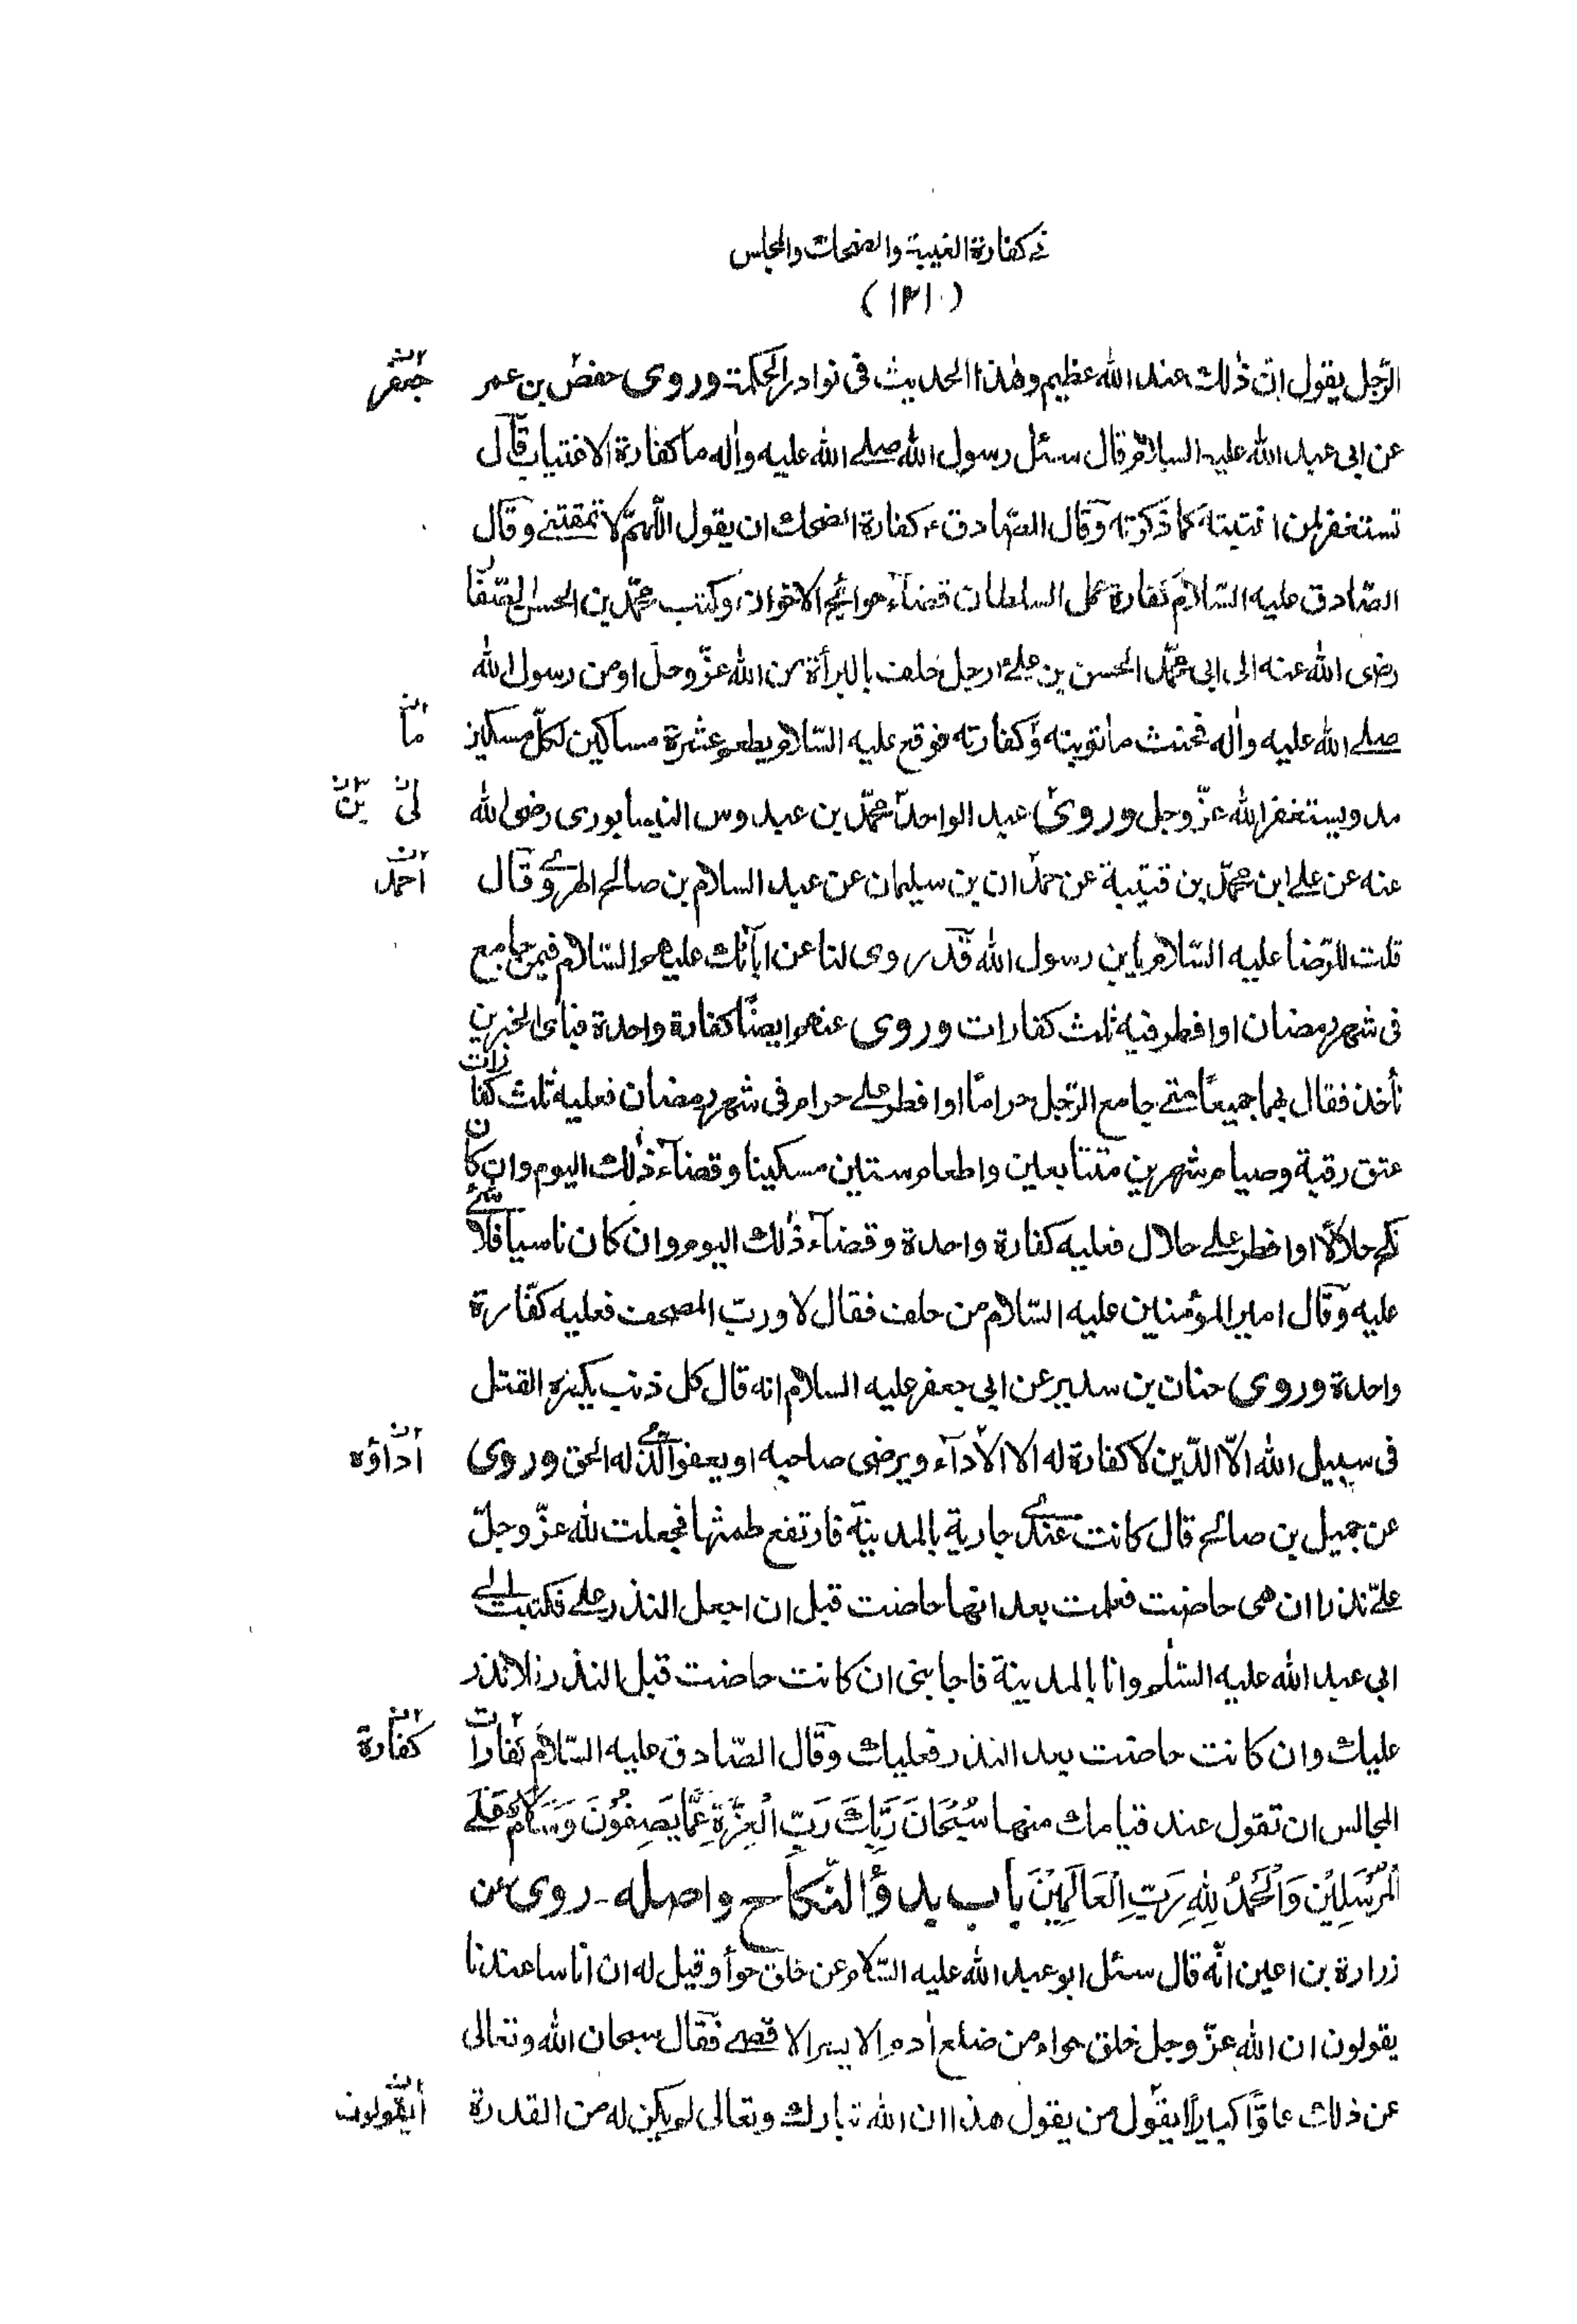 فے كفارة الغيبة والضحك والمجلس
(١٢١٠)
الرّجل يقول انّ ذٰلك عند الله عظيم وهٰذا الحديث فى نوادر الحكمة وروى حفص بن عمر
جعفر
عن ابى عبد الله عليه السلام قال سئل رسول الله صلے الله عليه واٰله ما كفارة الاغتياب قال
تستغفر لمن اغتبته كما ذكرته وقال الصّادق ء كفارة الضحك ان يقول اللّٰهمّ لا تمقتنے وقال
الصّادق عليه السّلام كفارة عمل السلطان قضاء حوائج الاخوان وكتب محمّد بن الحسن الصّفّا
رضى الله عنه الى ابى محمّد الحسن بن علے ء رجل حلف بالبرأة من الله عزّ وجل او من رسول الله
صلے الله عليه واٰله فحنث ما توبته وكفارته فوقع عليه السّلام يطعم عشرة مساكين لكلّ مسكين
ما
مد ويستغفر الله عزّ وجل وروىٰ عبد الواحد محمّد بن عبدوس النيسابورى رضى الله
لى بن
عنه عن علے ابن محمّد بن قتيبة عن حمدان بن سليمان عن عبد السلام بن صالح الهروے قال
احمد
قلت للرّضا عليه السّلام يابن رسول الله قد روى لنا عن اٰبائك عليهم السّلام فيمن جامع
فى شهر رمضان او افطر فيه ثلث كفارات وروى عنهم ايضًا كفارة واحدة فباى الخبرين
نأخذ فقال بهما جميعًا متے جامع الرّجل حرامًا او افطر علے حرام فى شهر رمضان فعليه ثلث كفارات
عتق رقبة وصيام شهرين متتابعين واطعام ستين مسكينا وقضاء ذٰلك اليوم وان كان
نكح حلالًا او افطر علے حلال فعليه كفارة واحدة وقضاء ذٰلك اليوم وان كان ناسيا فلا شئ
عليه وقال امير المؤمنين عليه السّلام من حلف فقال لا وربّ المصحف فعليه كفّارة
واحدة وروى حنان بن سدير عن ابى جعفر عليه السلام انه قال كل ذنب يكفره القتل
فى سبيل الله الّا الدّين لا كفارة له الا الاداء ويرضى صاحبه او يعفو الّذے له الحق وروى
اداؤه
عن جميل بن صالح قال كانت عندے جارية بالمدينة فارتفع طمثها فجعلت لله عزّ وجلّ
علےّ نذرا ان هى حاضت فعلمت بعد انها حاضت قبل ان اجعل النذر علے فكتبت الے
ابى عبد الله عليه السّلٰم وانا بالمدينة فاجابنى ان كانت حاضت قبل النذر فلا نذر
عليك وان كانت حاضت بعد النذر فعليك وقال الصّادق عليه السّلام كفارات
كفارة
المجالس ان تقول عند قيامك منها سُبْحَانَ رَبِّكَ رَبِّ الْعِزَّةِ عَمَّا يَصِفُوْنَ وَسَلَامٌ عَلَے
الْمُرْسَلِيْنَ وَالْحَمْدُ لِلّٰهِ رَبِّ الْعَالَمِيْنَ باب بدؤ النّكاح واصله - روى عن
زرارة بن اعين انّه قال سئل ابو عبد الله عليه السّلام عن خلق حوأ وقيل له ان اناسا عندنا
يقولون ان الله عزّ وجل خلق حواء من ضلع اٰدم الايسر الاقصے فقال سبحان الله وتعالى
عن ذلك علوًّا كبيرًا يقول من يقول هذا ان الله تبارك وتعالى لم يكن له من القدرة
ايقولون